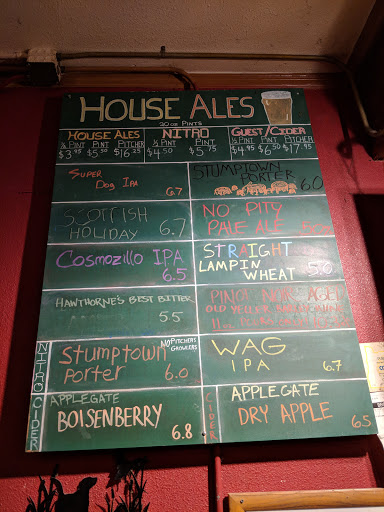 HOUSE ALES
20 OZ PINTS
HOUSE ALES
½ PINT PINT PITCHER
$3.95 $5.50 $16.25
NITRO
½ PINT PINT
$4.50 $5.75
GUEST/CIDER
½ PINT PINT PITCHER
$4.95 $6.50 $17.95
SUPER
DOG IPA
6.7
STUMPTOWN
PORTER
6.0
SCOTTISH
HOLIDAY 6.7
NO PITY
PALE ALE
COSMOZILLO IPA
6.5
STRAIGHT
LAMPIN
WHEAT 5.0
HAWTHORNE'S BEST BITTER
5.5
PINOT NOIR AGED
OLD YELLER
NITRO
STUMPTOWN
PORTER 6.0
NO PITCHERS
GROWLERS
WAG
IPA 6.7
CIDER
APPLEGATE
BOISENBERRY 6.8
CIDER
APPLEGATE
DRY APPLE 6.5